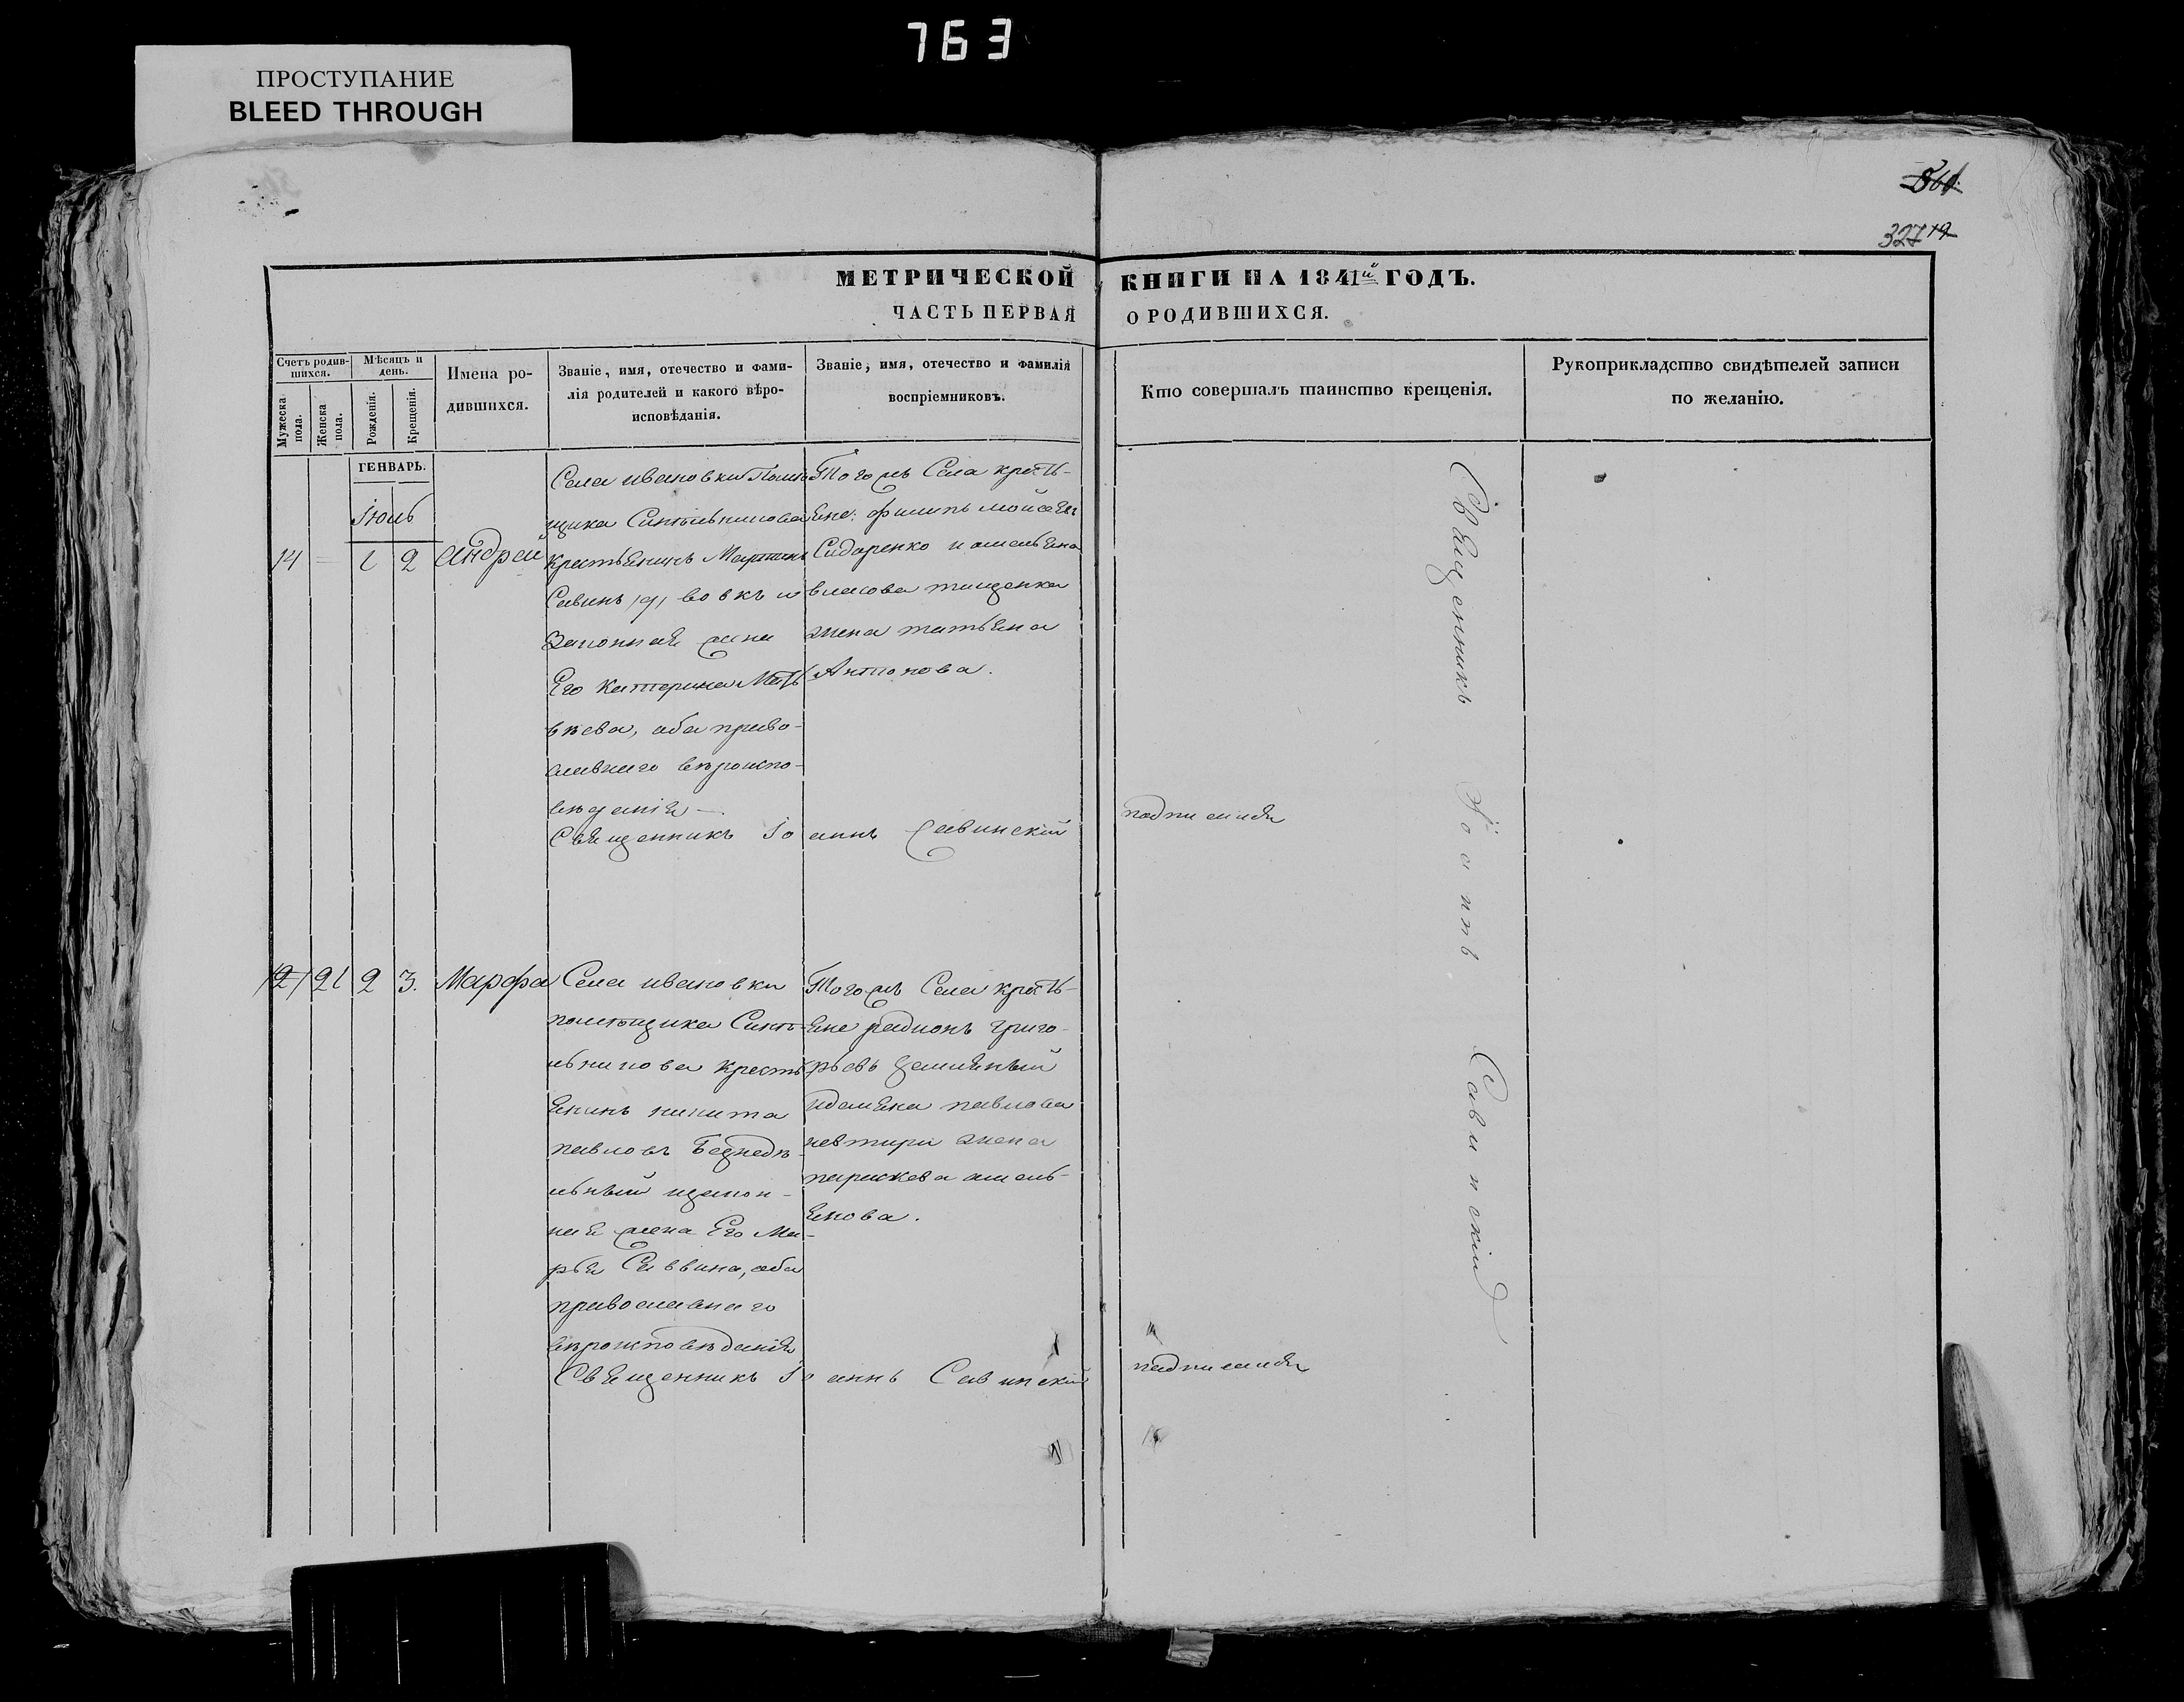 763
ПРОСТУПАНИЕ
BLEED THROUGH
327
МЕТРИЧЕСКОЙ КНИГИ НА 1841й ГОДЪ.
ЧАСТЬ ПЕРВАЯ О РОДИВШИХСЯ.
Счетъ родив-
шихся.
Мужеска
пола.
Женска
пола.
Мѣсяцъ и
день.
Рожденія.
Крещенія.
Имена ро-
дившихся.
Званіе, имя, отечество и фами-
лія родителей и какого вѣро-
исповѣданія.
Званіе, имя, отечество и фамилія
воспріемниковъ.
Кто совершалъ таинство крещенія.
Рукоприкладство свидѣтелей записи
по желанію.
ГЕНВАРЬ.
Іюль
14
1
2
Андрей
Села ивановки
щика
крестьянинъ Мартинъ
Савинъ вовкъ и
Законная жена
Его Катерина Мать
вѣева, оба право-
славнаго вѣроиспо-
вѣданія
Тогожъ Села кресть-
яне: филипъ мойсеев
Сидаренко
власова тищенка
жена татьяна
Антонова.
Священникъ Іоаннъ Савинскій подписался
Священникъ Іоаннъ Савинскій
21
2
3.
Марфа
Села ивановки
помѣщика Синѣ-
льникова кресть
янинъ никита
павловъ Безнедѣ-
льный изакон-
ная жена Его Ма-
рья Саввина, оба
православнаго
вѣроисповѣданія
Тогожъ Села кресть-
яне радионъ григо-
рьевъ
павлова
жена
параскева амель-
янова.
Священникъ Іоаннъ Савинскій подписался